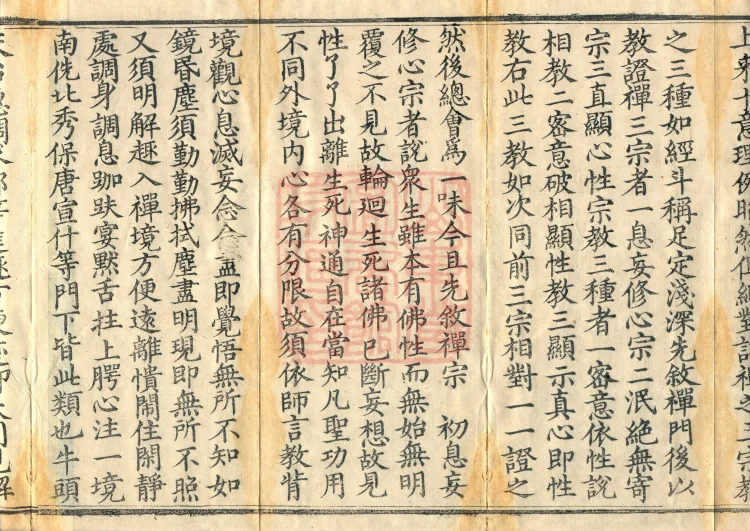 之三種如經斗稱足定淺深先敘禪門後以
教證禪三宗者一息妄修心宗二泯絕無寄
宗三直顯心性宗教三種者一密意依性說
相教二密意破相顯性教三顯示真心即性
教右此三教如次同前三宗相對一一證之
然後總會爲一味今且先敘禪宗　初息妄
修心宗者說衆生雖本有佛性而無始無明
覆之不見故輪迴生死諸佛已斷妄想故見
性了了出離生死神通自在當知凡聖功用
不同外境內心各有分限故須依師言教背
境觀心息滅妄念念盡即覺悟無所不知如
鏡昏塵須勤勤拂拭塵盡明現即無所不照
又須明解趣入禪境方便遠離憒閙住閑靜
處調身調息跏趺宴默舌拄上腭心注一境
南侁北秀保唐宣什等門下皆此類也牛頭